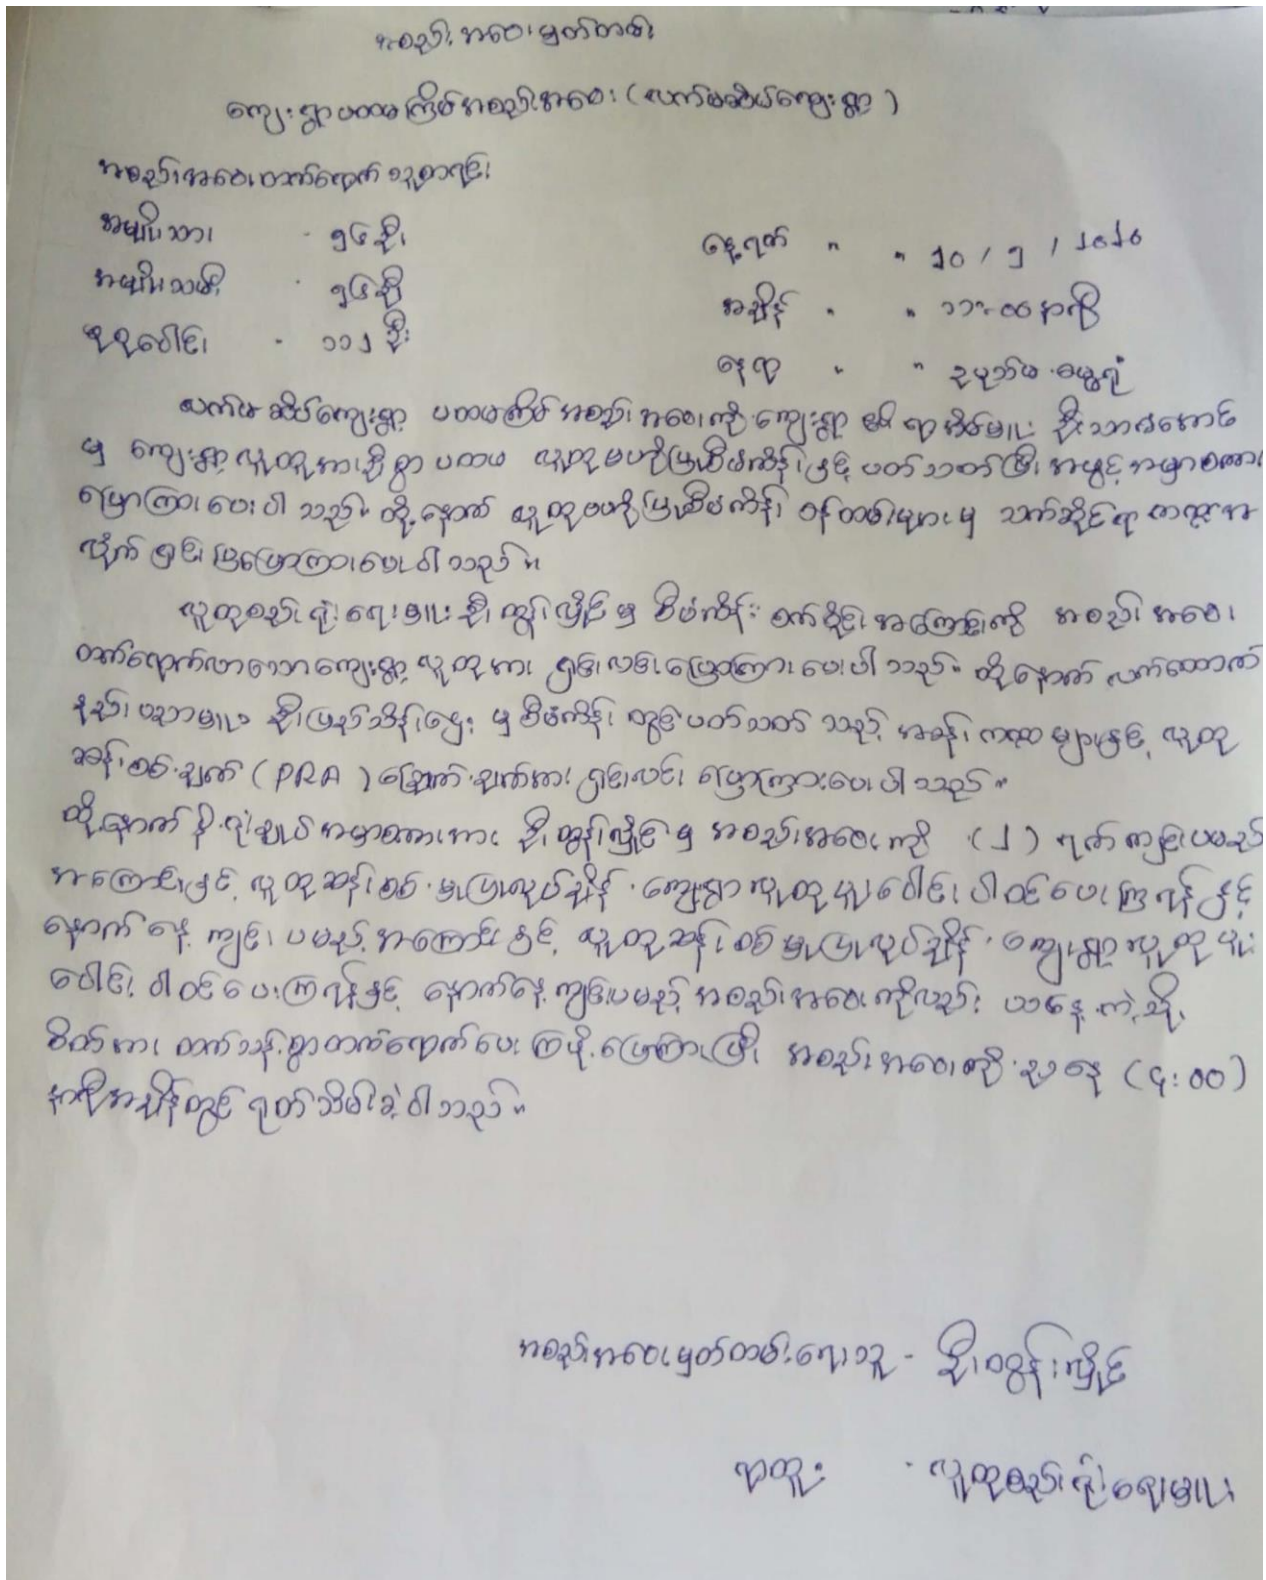 အစည်းအဝေးမှတ်တမ်း
ကျေးရွာပထမကြိမ်အစည်းအဝေး (လက်မဆိပ်ကျေးရွာ)
အစည်းအဝေးတက်ရောက်သူစာရင်း
အမျိုးသား - ၅၆ ဦး
နေ့ရက် " " ၃၀ / ၅ / ၂၀၂၀
အမျိုးသမီး - ၅၆ ဦး
အချိန် " " ၁၁း၀၀ နာရီ
စုစုပေါင်း - ၁၁၂ ဦး
နေရာ " " ဥပုသ်ဇရပ်
လက်မဆိပ်ကျေးရွာ ပထမကြိမ် အစည်းအဝေးကို ကျေးရွာ၏ ရာအိမ်မှူး
မှ ကျေးရွာလူထုအားဦးစွာ ပထမ လူထုဗဟိုပြုစီမံကိန်းနှင့် ပတ်သတ်ပြီး အဖွင့်အမှာစကား
ပြောကြားပေးပါသည်။ ထို့နောက် လူထုဗဟိုပြုစီမံကိန်း ဝန်ထမ်းများမှ သက်ဆိုင်ရာကဏ္ဍအ
လိုက် ရှင်းပြပြောကြားပေးပါသည်။
လူထုစည်းရုံးရေးမှူး ဦးထွန်းလှိုင်မှ စီမံကိန်းစက်ဝိုင်းအကြောင်းကို အစည်းအဝေး
တက်ရောက်လာသောကျေးရွာလူထုအား ရှင်းလင်းပြောကြားပေးပါသည်။ ထို့နောက် လက်ထောက်
နည်းပညာမှူး မှ စီမံကိန်းတွင်ပတ်သတ်သည့် အခန်းကဏ္ဍများနှင့် လူထု
ဆန်းစစ်ချက် (PRA) ခြောက်ချက်အား ရှင်းလင်းပြောကြားပေးပါသည်။
ထို့နောက် နိဂုံးချုပ် အမှာစကားအား ဦးထွန်းလှိုင်မှ အစည်းအဝေးကို (၂) ရက်ကျင်းပမည့်
အကြောင်းနှင့် လူထုဆန်းစစ်မှုပြုလုပ်ချိန် ကျေးရွာလူထုပူးပေါင်းပါဝင်ပေးကြရန်နှင့်
နောက်နေ့ကျင်းပမည့်အကြောင်းနှင့် လူထုဆန်းစစ်မှုပြုလုပ်ချိန် ကျေးရွာလူထုပူး
ပေါင်းပါဝင်ပေးကြရန်နှင့် နောက်နေ့ကျင်းပမည့် အစည်းအဝေးကိုလည်း ယနေ့ကဲ့သို့
စိတ်အားတက်သန်စွာတက်ရောက်ပေးကြဖို့ပြောကြားပြီး အစည်းအဝေးကို ညနေ (၄:၀၀)
နာရီအချိန်တွင် ရုတ်သိမ်းခဲ့ပါသည်။
အစည်းအဝေးမှတ်တမ်းရေးသူ - ဦးထွန်းလှိုင်
ရာထူး - လူထုစည်းရုံးရေးမှူး